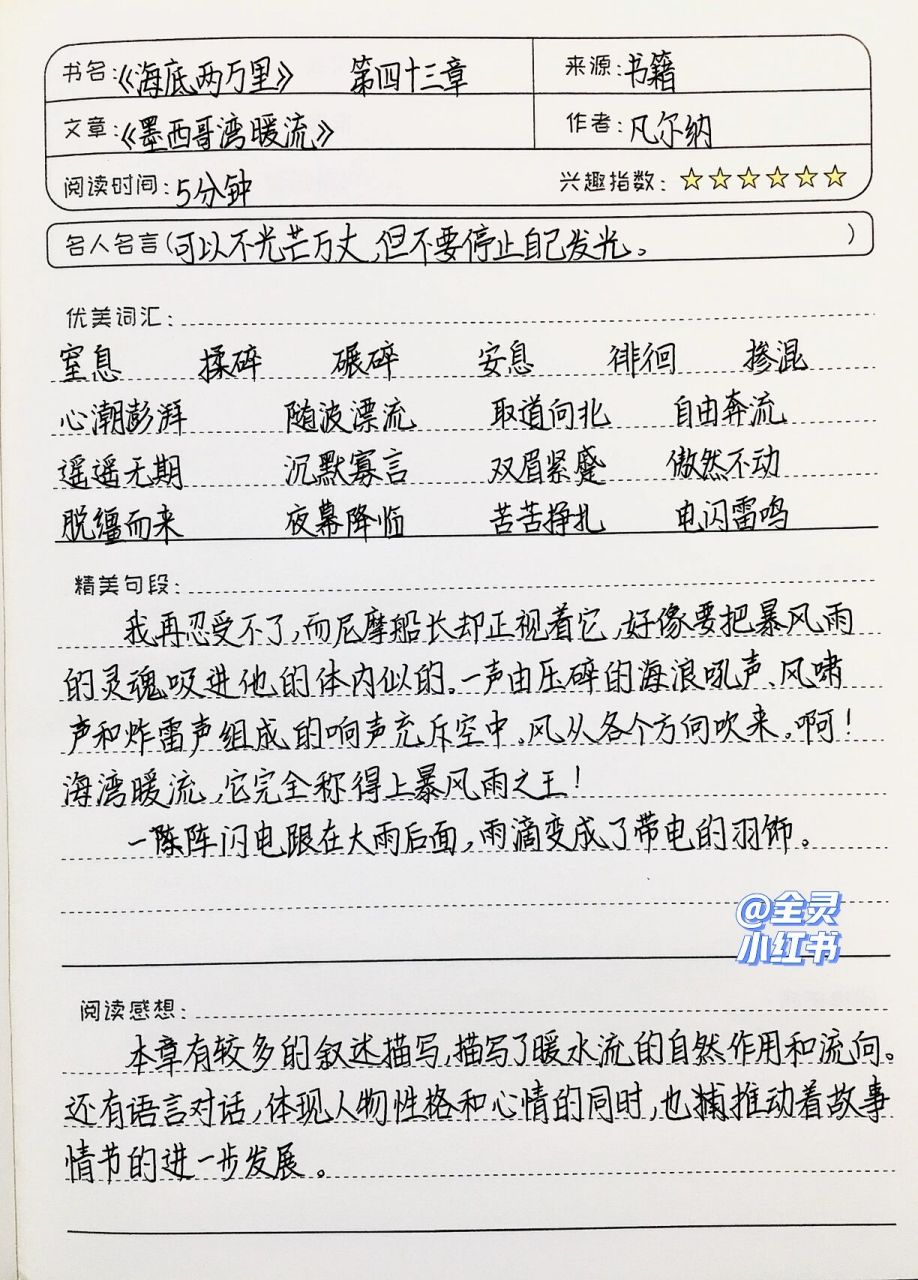 书名:《海底两万里》 第四十三章 来源:书籍
文章:《墨西哥湾暖流》 作者:凡尔纳
阅读时间:5分钟 兴趣指数:☆☆☆☆☆☆
名人名言(可以不光芒万丈,但不要停止自己发光。)
优美词汇:
窒息 揉碎 碾碎 安息 徘徊 掺混
心潮彭湃 随波漂流 取道向北 自由奔流
遥遥无期 沉默寡言 双眉紧蹙 傲然不动
脱缰而来 夜幕降临 苦苦挣扎 电闪雷鸣
精美句段:
我再忍受不了,而尼摩船长却正视着它,好像要把暴风雨
的灵魂吸进他的体内似的。一声由压碎的海浪吼声、风啸
声和炸雷声组成的响声充斥空中。风从各个方向吹来。啊!
海湾暖流,它完全称得上暴风雨之王!
一陈阵闪电跟在大雨后面,雨滴变成了带电的羽饰。
@全灵
小红书
阅读感想:
本章有较多的叙述描写,描写了暖水流的自然作用和流向。
还有语言对话,体现人物性格和心情的同时,也推动着故事
情节的进一步发展。